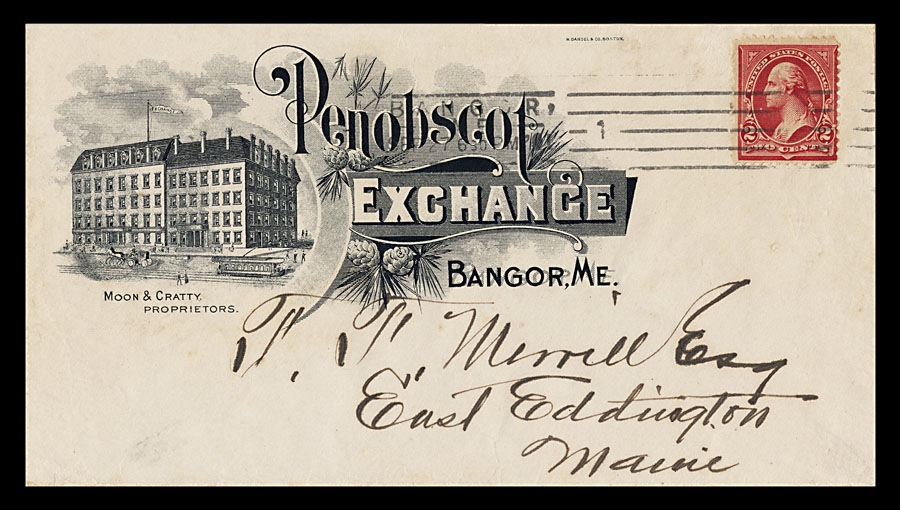 H. DANGEL & CO. BOSTON.
EXCHANGE
Penobscot
EXCHANGE
BANGOR, ME.
MOON & CRATTY,
PROPRIETORS.
BANGOR,
630 PM
1
UNITED STATES POSTAGE
2 2
TWO CENTS
F. F. Merrill Esq
East Eddington
Maine